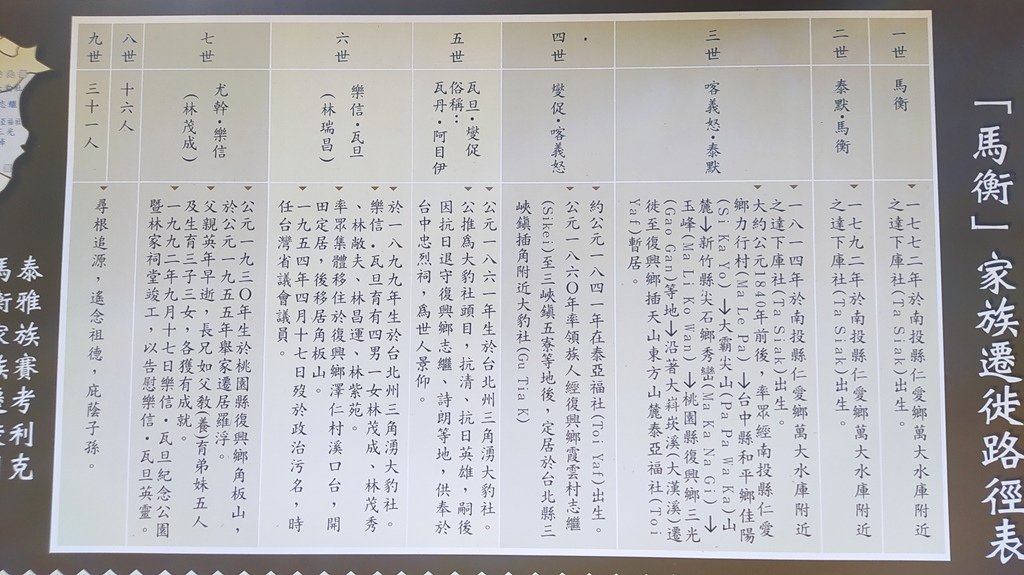 「馬衡」家族遷徙路徑表
一世
馬衡
一七七二年於南投縣仁愛鄉萬大水庫附近
之達下庫社(Ta Siak)出生。
二世
泰默‧馬衡
一七九二年於南投縣仁愛鄉萬大水庫附近
之達下庫社(Ta Siak)出生。
三世
喀義怒‧泰默
一八一四年於南投縣仁愛鄉萬大水庫附近
之達下庫社(Ta Siak)出生。
大約公元1840年前後，率眾經南投縣仁愛
鄉力行村(Ma Le Pa)→台中縣和平鄉佳陽
(Si Ka Yo)→大霸尖山(Pa Pa Wa Ka)山
麓→新竹縣尖石鄉秀巒(Ma Ka Na Gi)→
玉峰(Ma Li Ko Wan)→桃園縣復興鄉三光
(Gao Gan)等地→沿著大嵙崁溪(大漢溪)遷
徙至復興鄉插天山東方山麓泰亞福社(Toi
Yaf)暫居。
四世
燮促‧喀義怒
約公元一八四一年在泰亞福社(Toi Yaf)出生。
公元一八六〇年率領族人經復興鄉霞雲村志繼
(Sikei)至三峽鎮五寮等地後，定居於台北縣三
峽鎮插角附近大豹社(Gu Tia K)
五世
瓦旦‧燮促
俗稱：
瓦丹‧阿目伊
公元一八六一年生於台北州三角湧大豹社。
公推為大豹社頭目，抗清、抗日英雄，嗣後
因抗日退守復興鄉志繼、詩朗等地，供奉於
台中忠烈祠，為世人景仰。
六世
樂信‧瓦旦
(林瑞昌)
於一八九九年生於台北州三角湧大豹社。
樂信‧瓦旦育有四男一女林茂成、林茂秀
、林敞夫、林昌運、林紫苑。
率眾集體移住於復興鄉澤仁村溪口台，開
田定居，後移居角板山。
一九五四年四月十七日歿於政治污名，時
任台灣省議會議員。
七世
尤幹‧樂信
(林茂成)
公元一九三〇年生於桃園縣復興鄉角板山，
於公元一九五五年舉家遷居羅浮。
父親英年早逝，長兄如父教(養)育弟妹五人
及生育三子三女，各獲有成就。
一九九二年九月十七日樂信‧瓦旦紀念公園
暨林家祠堂竣工，以告慰樂信‧瓦旦英靈。
八世
十六人
九世
三十一人
尋根追源，遙念祖德，庇蔭子孫。
泰雅族賽考利克
馬衡家族